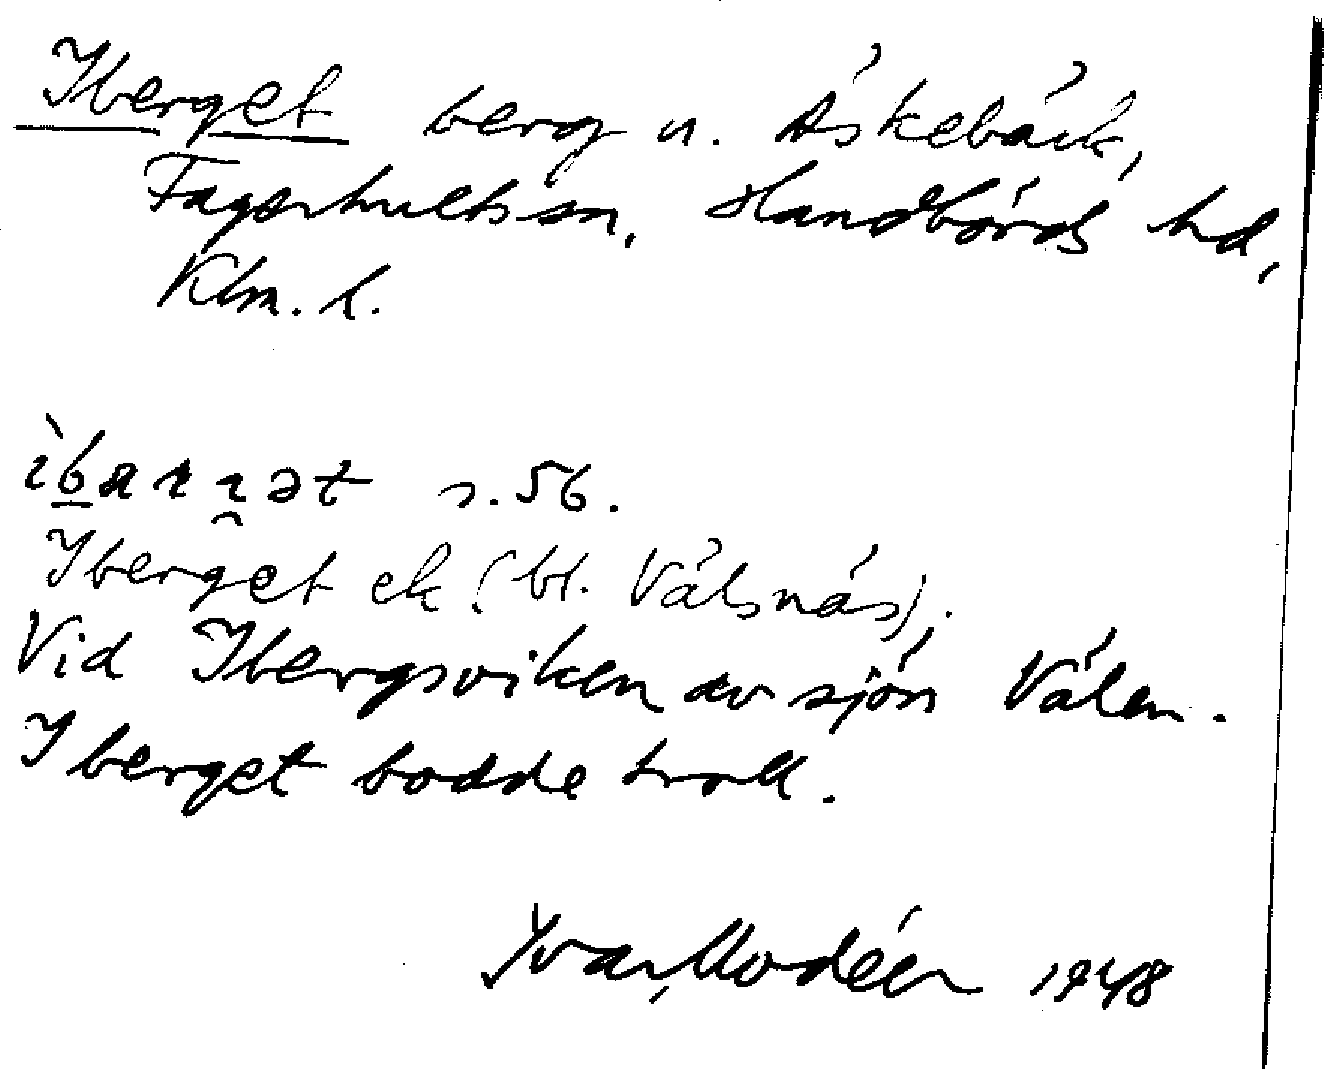 Iberget berg u. Äskebäck,
Fagerhults sn, Handbörds hd,
Klm. l.
s. 56.
Iberget ek (bl. Välsnäs).
Vid Ibergsviken av sjön Välen.
I berget bodde troll.
Ivar Modéer 1948